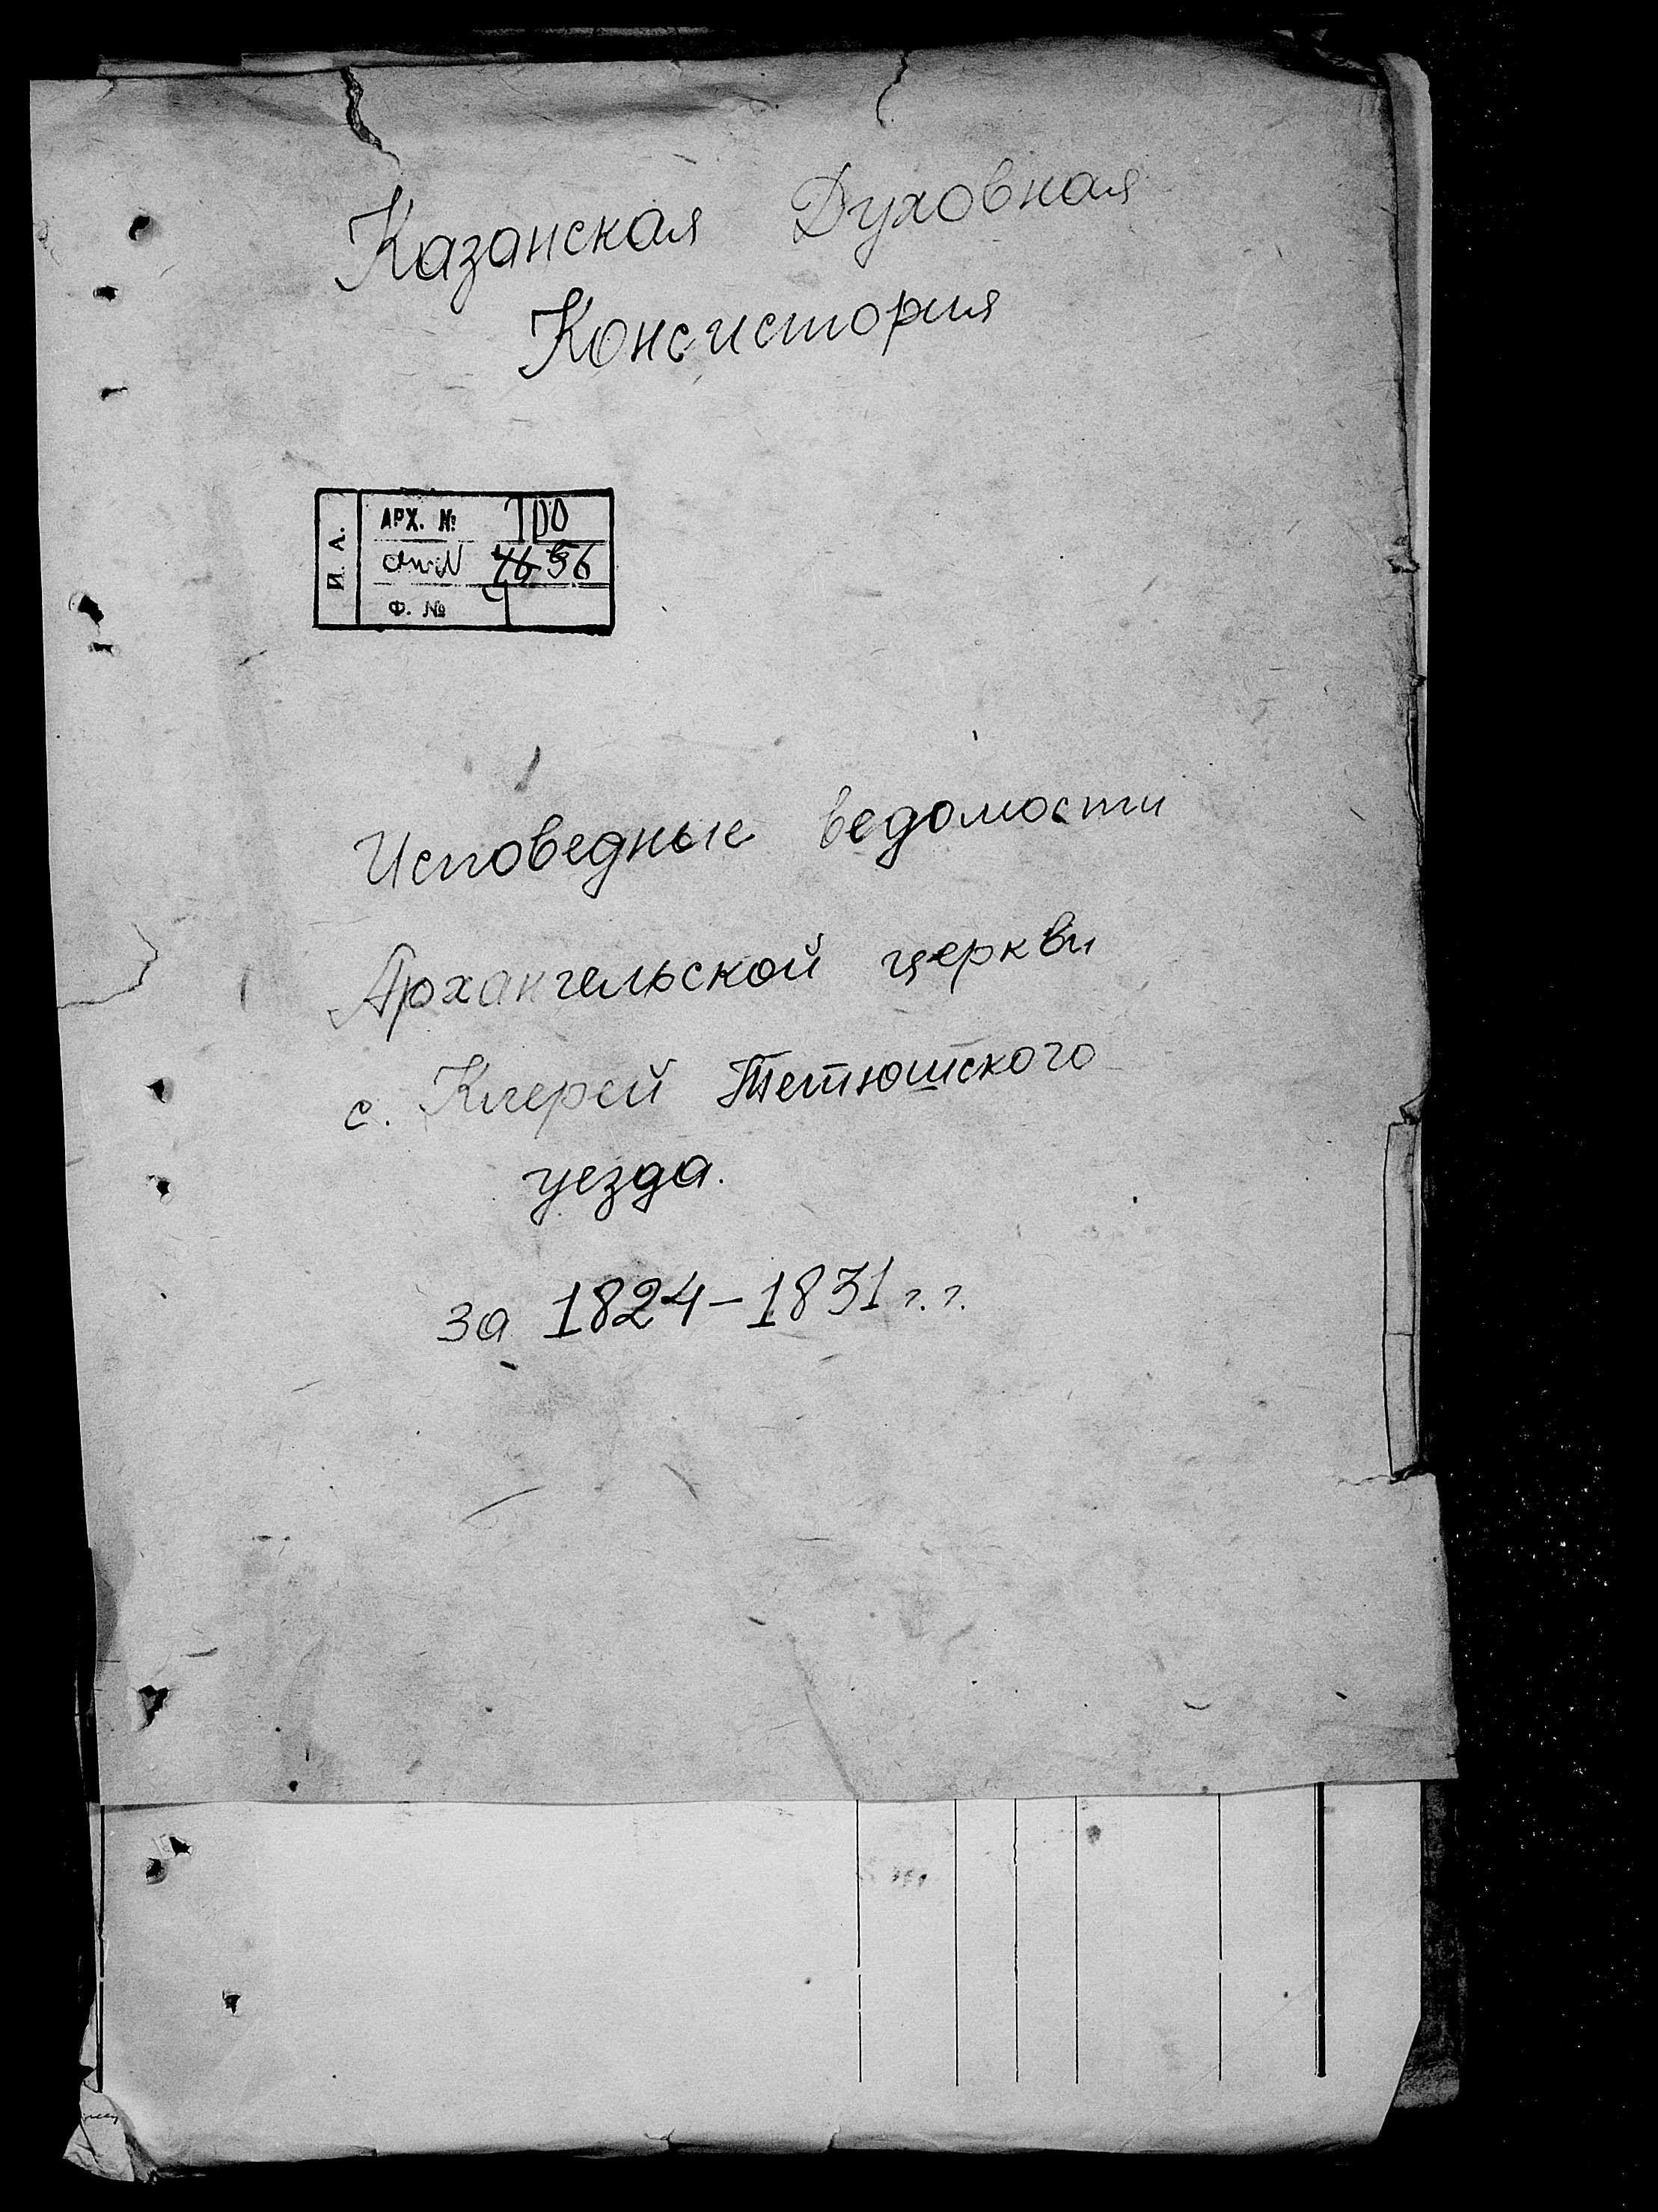 Казанская Духовная
Консистория
И. А.
АРХ. № 100
оп. N 56
Ф. №
Исповедные ведомости
Архангельской церкви
с. Клерей Тетюшского
уезда.
за 1824-1831 г.г.